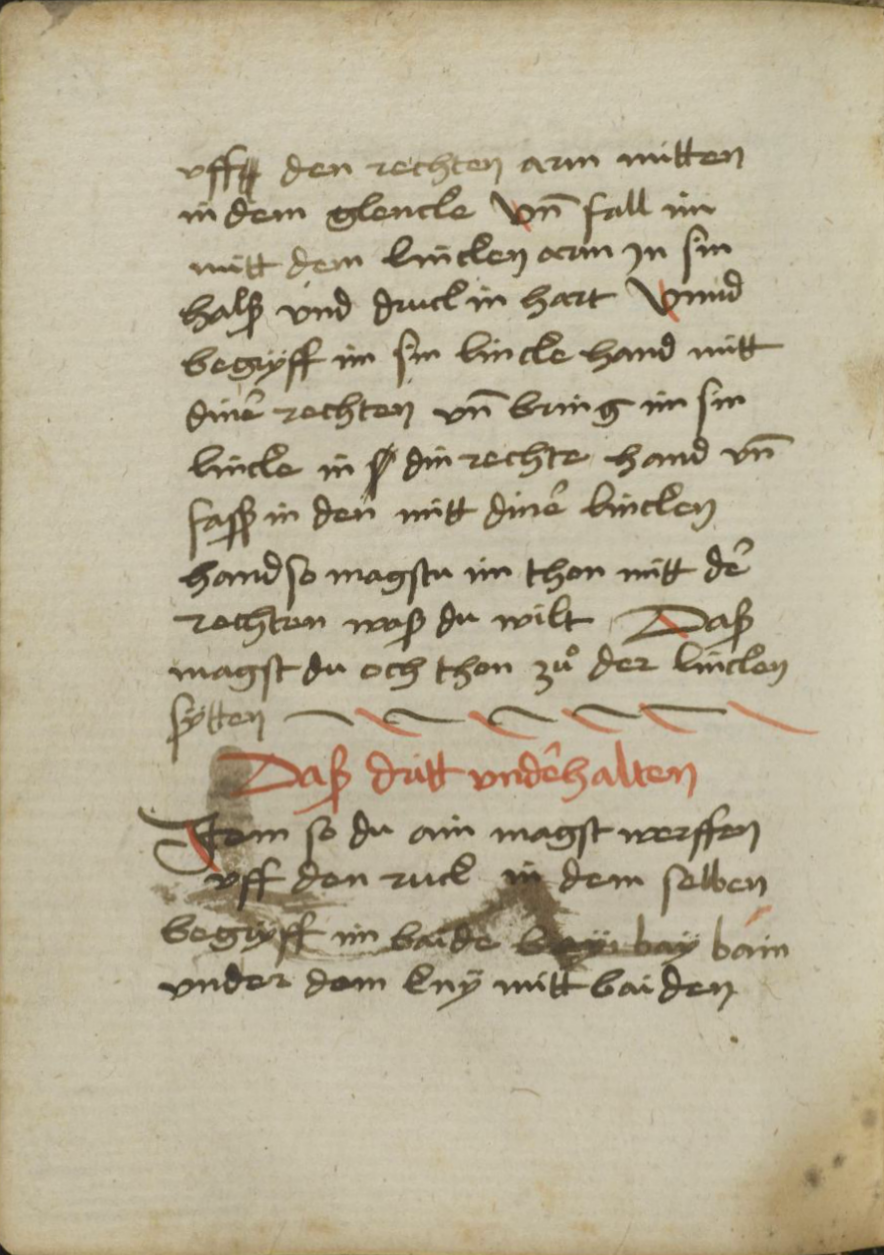 vff den rechten arm mitten
in dem glencke vn̄ fall im
mitt dem lincken arm in sin
halß vnd druck in hart Vnnd
begryff im sin lincke hand mitt
dineʳ rechten vn̄ bring im sin
lincke in din rechte hand vn̄
fasß in den mitt dineʳ lincken
hand so magstu im thon mitt deʳ
rechten waß du wilt Daß
magst du och thon zuͦ der lincken
sÿtten
Daß dritt vndeʳhalten
Item so du ain magst werffen
vff den ruck in dem selben
begryff im baide bain
vnder dem knÿ mitt baiden